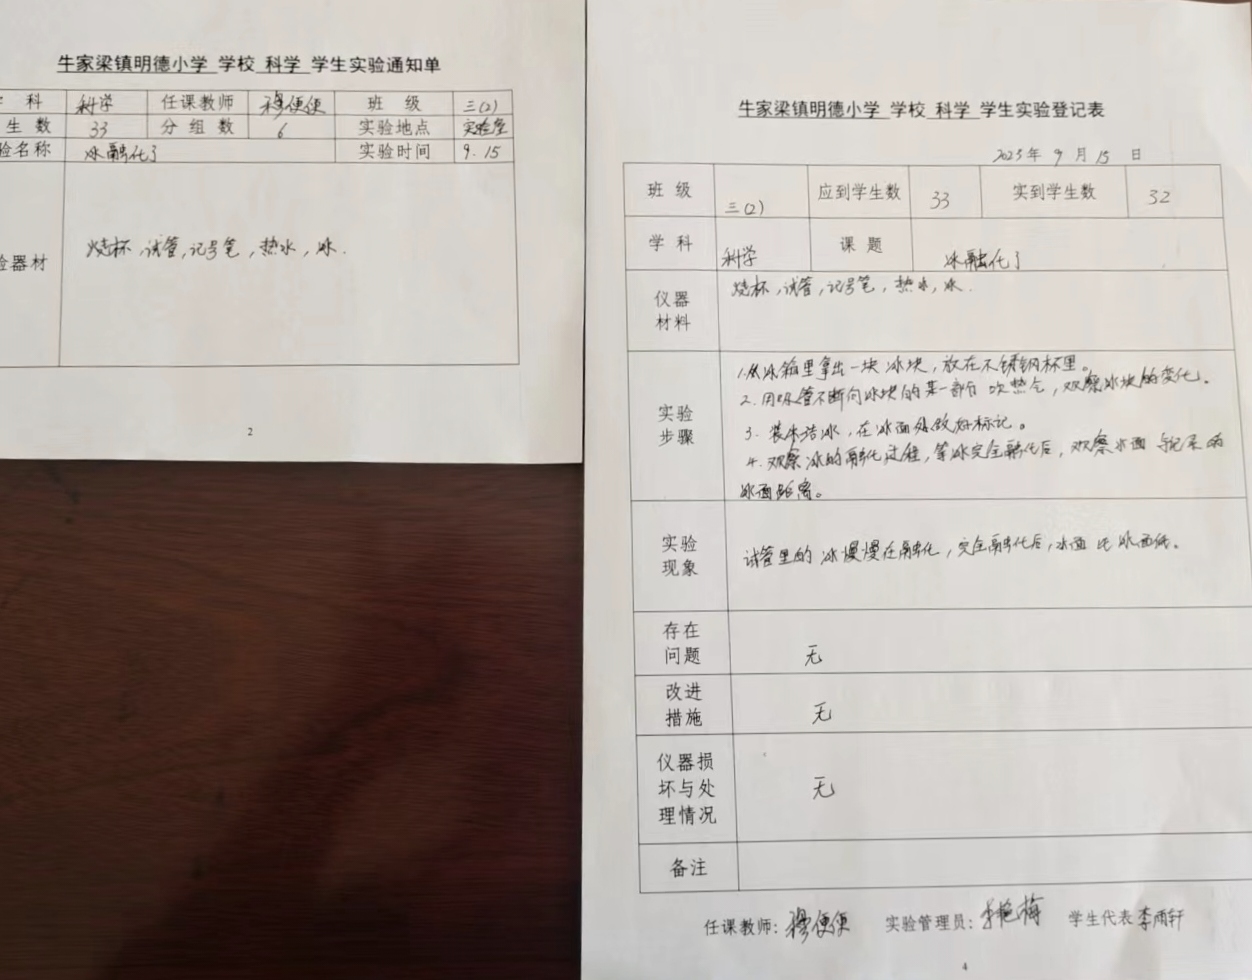 牛家梁镇明德小学 学校 科学 学生实验通知单
科 科学 任课教师 穆便便 班 级 三(2)
生 数 33 分 组 数 6 实验地点 实验室
验名称 冰融化了 实验时间 9.15
验器材 烧杯,试管,记号笔,热水,冰.
2
牛家梁镇明德小学 学校 科学 学生实验登记表
2025年 9 月 15 日
班 级 三(2) 应到学生数 33 实到学生数 32
学 科 科学 课 题 冰融化了
仪器
材料
烧杯,试管,记号笔,热水,冰.
实验
步骤
1.从冰箱里拿出一块冰块,放在不锈钢杯里。
2.用吸管不断向冰块的某一部分吹热气,观察冰块的变化。
3.装来结冰,在冰面处做好标记。
4.观察冰的融化过程,等冰完全融化后,观察水面与记录的
冰面距离。
实验
现象
试管里的冰慢慢在融化,完全融化后,水面比冰面低。
存在
问题
无
改进
措施
无
仪器损
坏与处
理情况
无
备注
任课教师:穆便便 实验管理员: 艳梅 学生代表 李雨轩
4